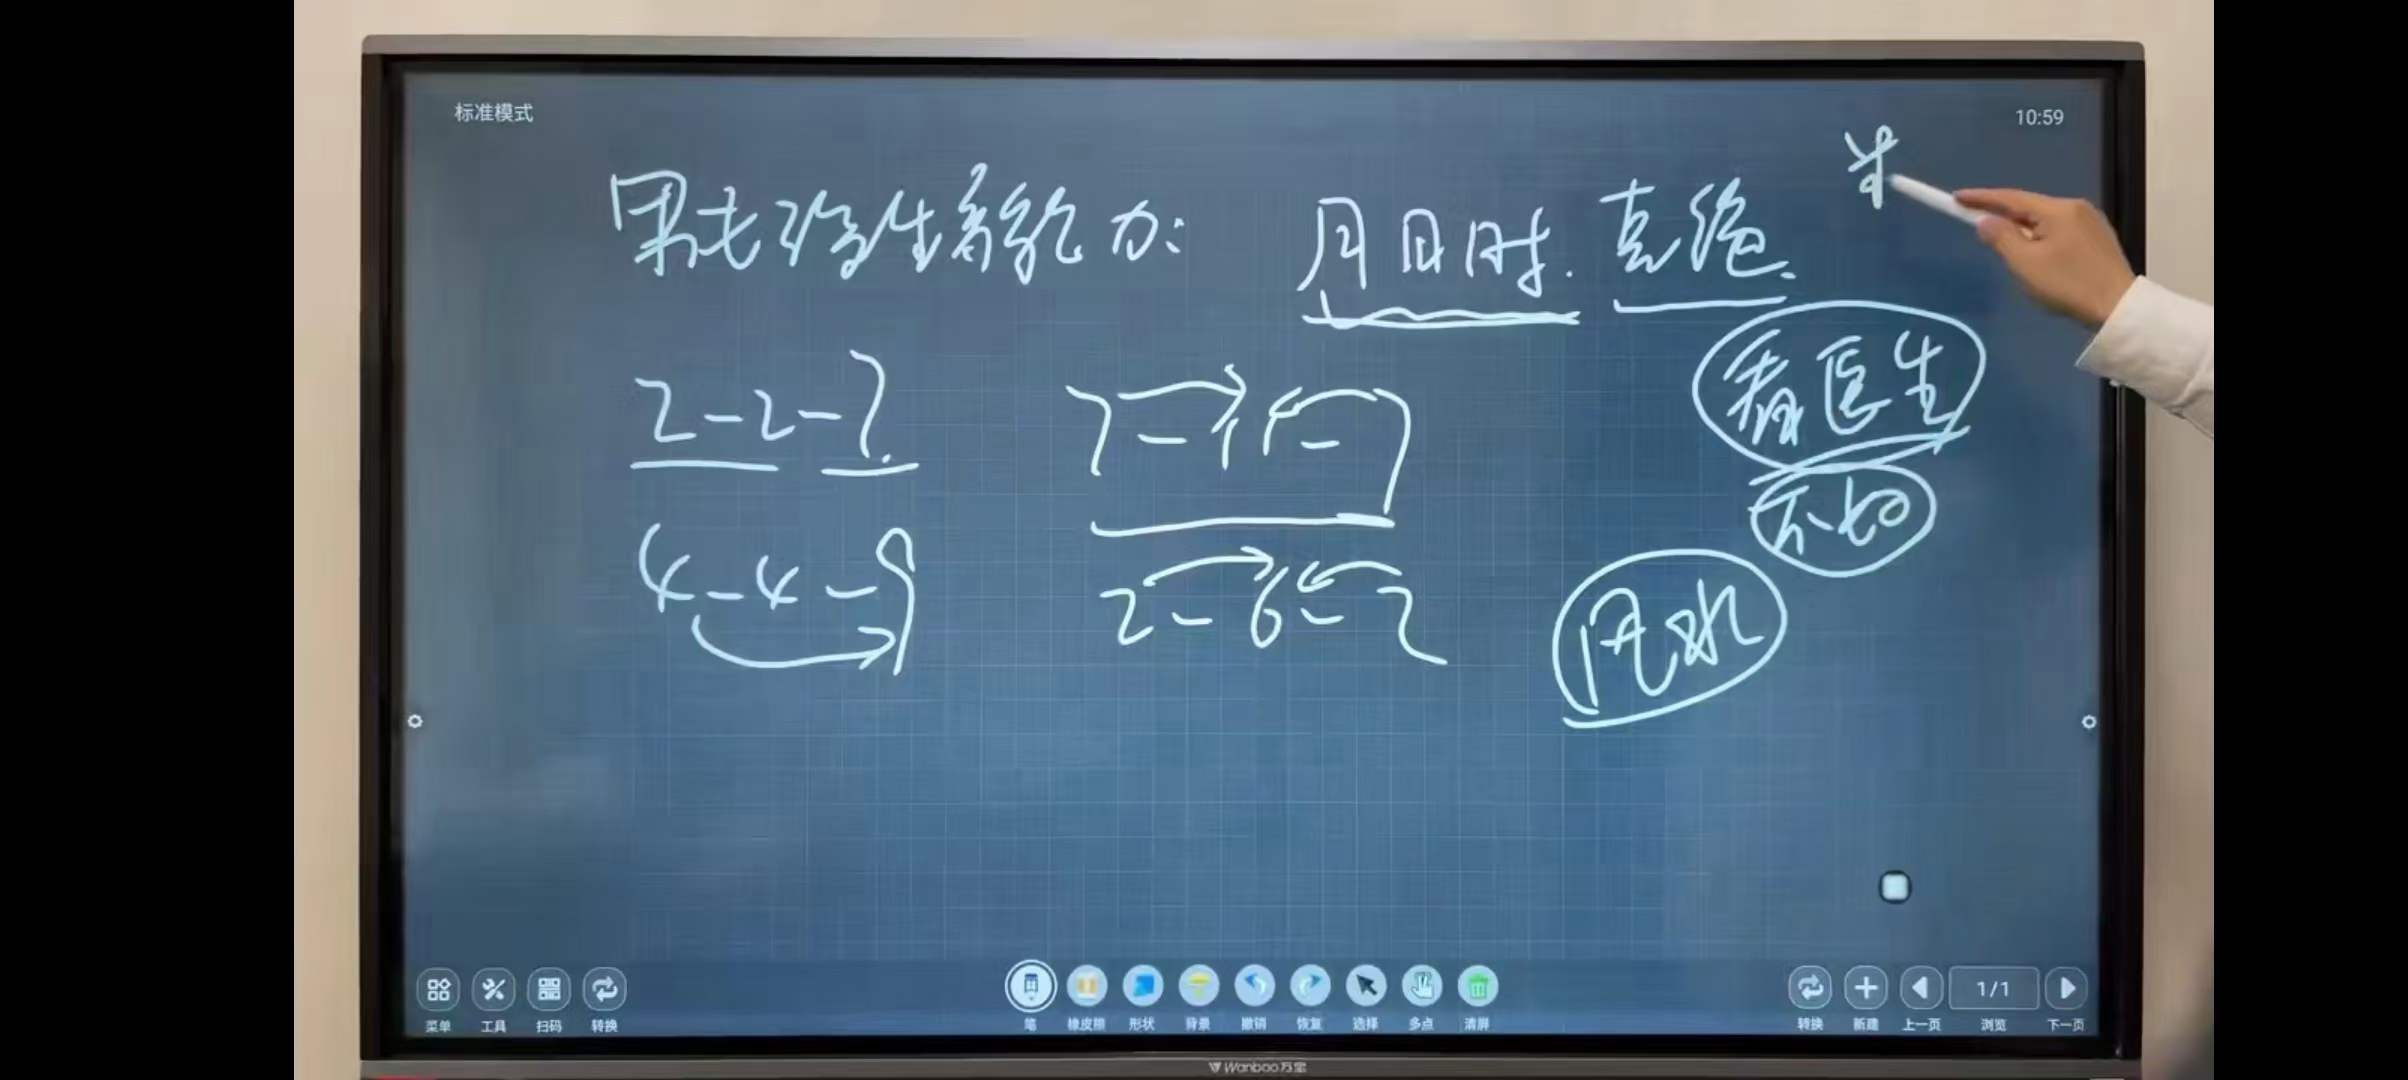 标准模式
10:59
男女 生育能力:
月日时. 克绝.
看医生
2-2-7.
7-11-7
不如
4-4-9
2-6-2
风水
菜单 工具 扫码 转换
笔 橡皮擦 形状 背景 撤销 恢复 选择 多点 清屏
转换 新建 上一页 1/1 浏览 下一页
Wanboo万宝